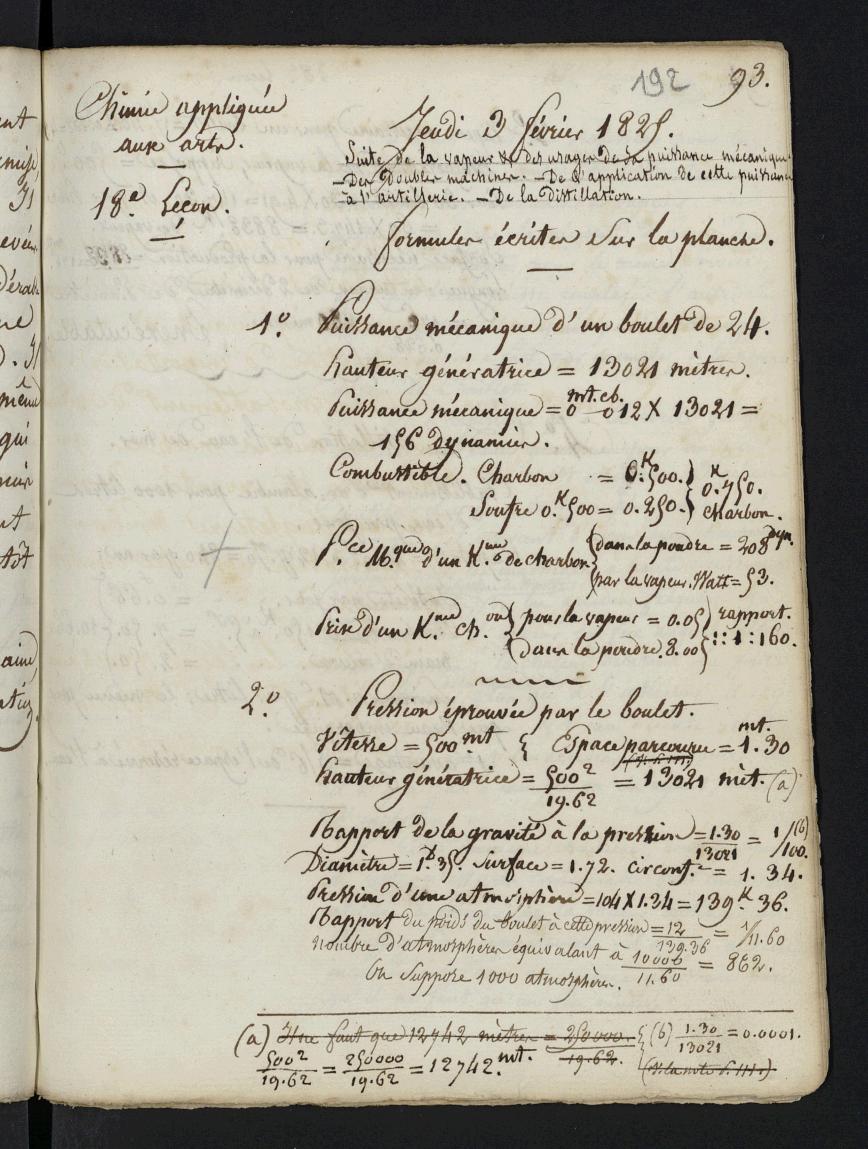 192 93.
Chimie appliquée
aux arts.
18.e Leçon.
Jeudi 3 février 1825.
Suite de la vapeur & des usages de sa puissance mécanique
— Des doubles machines. — De l'application de cette puissance
à l'artillerie. — De la distillation.
formules écrites sur la planche.
1.o Puissance mécanique d'un boulet de 24.
hauteur génératrice = 13021 mètres.
Puissance mécanique = 0 mt.cb. 012 X 13021 =
156 dynamies.
Combustible. Charbon = 0.K500. } 0.K750.
Soufre 0.K500 = 0.250. } charbon.
P.ce M.que d'un K.me de charbon { dans la poudre = 208 dyn.
{ par la vapeur. Watt = 53.
Prix d'un K.me ch.on { pour la vapeur = 0.05 } rapport.
{ dans la poudre. 8.00 } :: 1 : 160.
2.o Pression éprouvée par le boulet.
Vitesse = 500 mt { Espace parcouru = 1.mt 30
hauteur génératrice = 500² / 19.62 = 13021 mèt. (a)
Rapport de la gravité à la pression = 1.30 / 13021 = 1/100. (b)
Diamètre = 1.D 35. Surface = 1.72. circonf.ce = 1. 34.
Pression d'une atmosphère = 104 X 1.34 = 139.K 36.
Rapport du poids du boulet à cette pression = 12 / 139.36 = 1/11.60
Nombre d'atmosphères équivalant à 10000 / 11.60 = 862.
On suppose 1000 atmosphères.
(a) Il ne faut que 12742 mètres = 250000. / 19.62. { (b) 1.30 / 13021 = 0.0001.
500² / 19.62 = 250000 / 19.62 = 12742. mt. (V. la note P. III.)